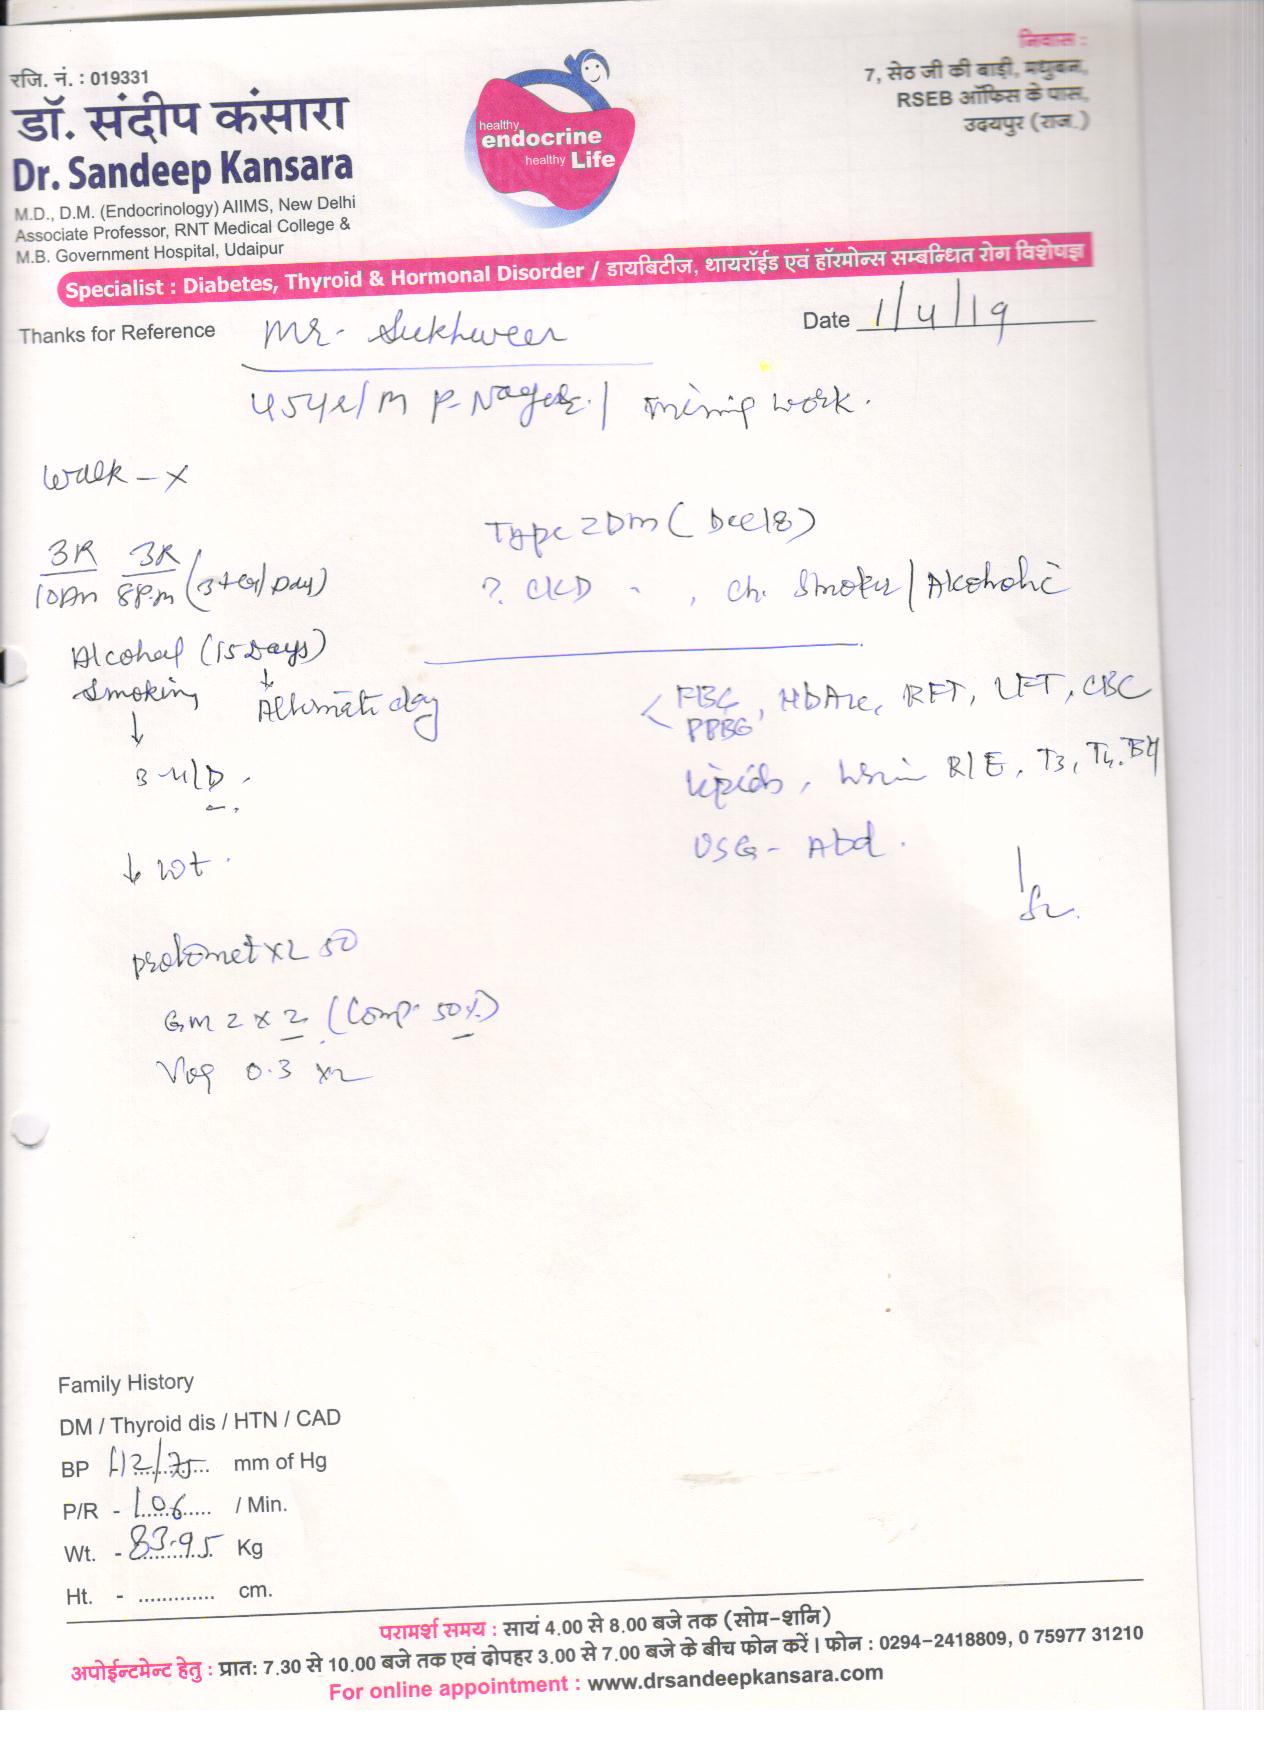 निवास :
रजि. नं. : 019331
7, सेठ जी की बाड़ी, मधुबन,
डॉ. संदीप कंसारा
RSEB ऑफिस के पास,
उदयपुर (राज.)
Dr. Sandeep Kansara
healthy
endocrine
healthy Life
M.D., D.M. (Endocrinology) AIIMS, New Delhi
Associate Professor, RNT Medical College &
M.B. Government Hospital, Udaipur
Specialist : Diabetes, Thyroid & Hormonal Disorder / डायबिटीज, थायरॉईड एवं हॉरमोन्स सम्बन्धित रोग विशेषज्ञ
Thanks for Reference Mr. Sukhveer
Date 1/4/19
45yr/M P-Nagar / mining work.
Walk - X
Type 2 Dm (Dec 18)
3R 3R
10Am 8P.m (Day)
? CKD , Ch. Smoker / Alcoholic
Alcohal (15 Days)
Smoking ↓
Alternate day
↓
3-4/D
FBG, HbA1c, RFT, LFT, CBC
PPBG
Lipids, R/E, T3, T4,
USG - Abd.
↓ wt
prolomet XL 50
Gm 2 x 2 (Comp. 50%)
Vog 0.3 x2
Family History
DM / Thyroid dis / HTN / CAD
BP 112/75 mm of Hg
P/R - 106 / Min.
Wt. - 83.95 Kg
Ht. - ............. cm.
परामर्श समय : सायं 4.00 से 8.00 बजे तक (सोम-शनि)
अपोईन्टमेन्ट हेतु : प्रात: 7.30 से 10.00 बजे तक एवं दोपहर 3.00 से 7.00 बजे के बीच फोन करें। फोन : 0294-2418809, 0 75977 31210
For online appointment : www.drsandeepkansara.com